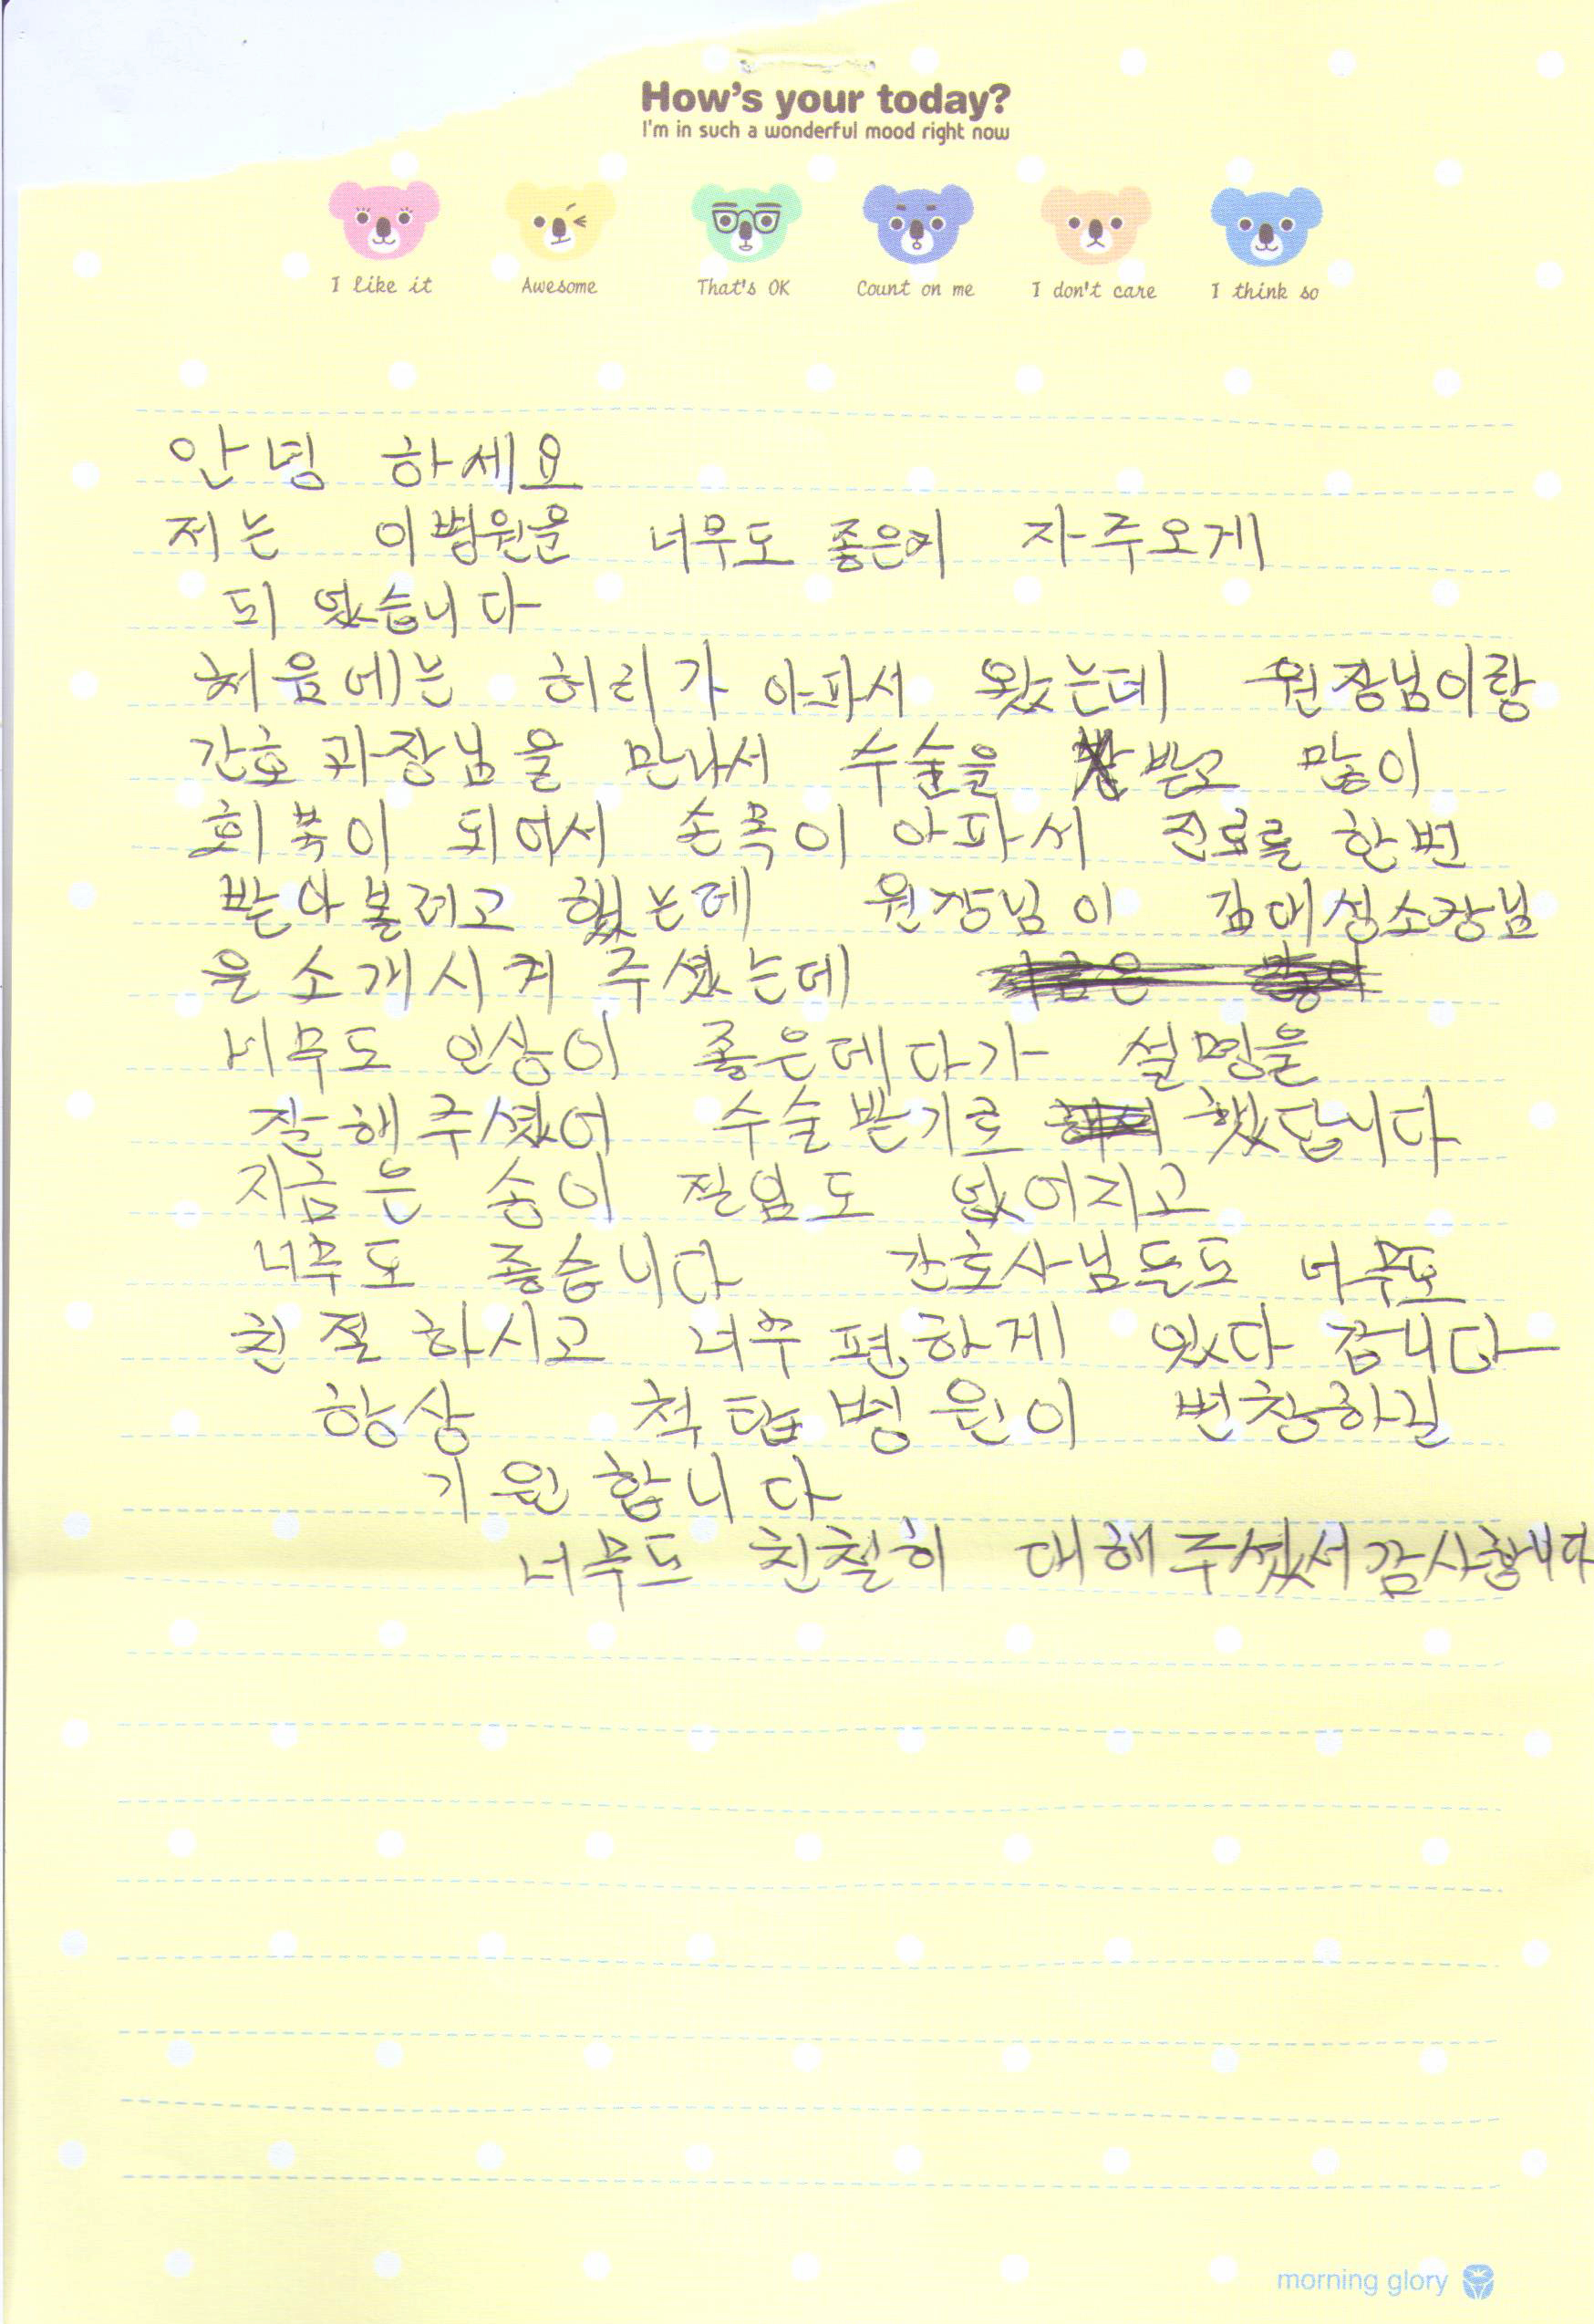 How's your today?
I'm in such a wonderful mood right now
I like it Awesome That's OK Count on me I don't care I think so
안녕 하세요
저는 이병원을 너무도 자주오게
되었습니다
처음에는 허리가 아파서 왔는데 원장님이랑
간호과장님을 만나서 수술을 받고 많이
회복이 되어서 손목이 아파서 진료를 한번
받아볼려고 했는데 원장님이 김대성소장님
을 소개시켜 주셨는데
너무도 인상이 좋은데다가 설명을
잘해주셨어 수술받기로 했답니다
지금은 손이 도 없어지고
너무도 좋습니다 간호사님들도 너무도
친절하시고 너무 편하게 있다 갑니다
항상 척탑병원이 번창하길
기원합니다
너무도 친철히 대해주셨서감사합니다
morning glory